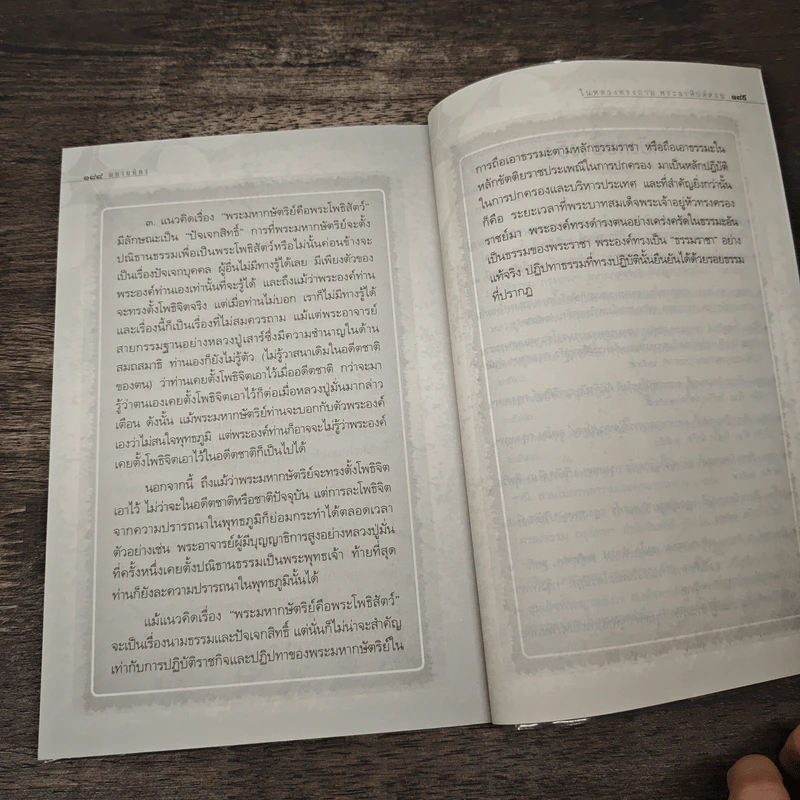 ๑๘๘
๓. แนวคิดเรื่อง "พระมหากษัตริย์คือพระโพธิสัตว์"
มีลักษณะเป็น "ปัจเจกสิทธิ์" การที่พระมหากษัตริย์จะตั้ง
ปณิธานธรรมเพื่อเป็นพระโพธิสัตว์หรือไม่นั้นค่อนข้างจะ
เป็นเรื่องปัจเจกบุคคล ผู้อื่นไม่มีทางรู้ได้เลย มีเพียงตัวของ
พระองค์ท่านเองเท่านั้นที่จะรู้ได้ และถึงแม้ว่าพระองค์ท่าน
จะทรงตั้งโพธิจิตจริง แต่เมื่อท่านไม่บอก เราก็ไม่มีทางรู้ได้
และเรื่องนี้ก็เป็นเรื่องที่ไม่สมควรถาม แม้แต่พระอาจารย์
สายกรรมฐานอย่างหลวงปู่เสาร์ซึ่งมีความชำนาญในด้าน
สมถสมาธิ ท่านเองก็ยังไม่รู้ตัว (ไม่รู้วาสนาเดิมในอดีตชาติ
ของตน) ว่าท่านเคยตั้งโพธิจิตเอาไว้เมื่ออดีตชาติ กว่าจะมา
รู้ว่าตนเองเคยตั้งโพธิจิตเอาไว้ก็ต่อเมื่อหลวงปู่มั่นมากล่าว
เตือน ดังนั้น แม้พระมหากษัตริย์ท่านจะบอกกับตัวพระองค์
เองว่าไม่สนใจพุทธภูมิ แต่พระองค์ท่านก็อาจจะไม่รู้ว่าพระองค์
เคยตั้งโพธิจิตเอาไว้ในอดีตชาติก็เป็นไปได้
นอกจากนี้ ถึงแม้ว่าพระมหากษัตริย์จะทรงตั้งโพธิจิต
เอาไว้ ไม่ว่าจะในอดีตชาติหรือชาติปัจจุบัน แต่การละโพธิจิต
จากความปรารถนาในพุทธภูมิก็ย่อมกระทำได้ตลอดเวลา
ตัวอย่างเช่น พระอาจารย์ผู้มีบุญญาธิการสูงอย่างหลวงปู่มั่น
ที่ครั้งหนึ่งเคยตั้งปณิธานธรรมเป็นพระพุทธเจ้า ท้ายที่สุด
ท่านก็ยังละความปรารถนาในพุทธภูมินั้นได้
แม้แนวคิดเรื่อง "พระมหากษัตริย์คือพระโพธิสัตว์"
จะเป็นเรื่องนามธรรมและปัจเจกสิทธิ์ แต่นั่นก็ไม่น่าจะสำคัญ
เท่ากับการปฏิบัติราชกิจและปฏิปทาของพระมหากษัตริย์ใน
ในหลวงทรงถาม ๑๘๙
การถือเอาธรรมะตามหลักธรรมราชา หรือถือเอาธรรมะใน
หลักขัตติยราชประเพณีในการปกครอง มาเป็นหลักปฏิบัติ
ในการปกครองและบริหารประเทศ และที่สำคัญยิ่งกว่านั้น
ก็คือ ระยะเวลาที่พระบาทสมเด็จพระเจ้าอยู่หัวทรงครอง
ราชย์มา พระองค์ทรงดำรงตนอย่างเคร่งครัดในธรรมะอัน
เป็นธรรมของพระราชา พระองค์ทรงเป็น "ธรรมราชา" อย่าง
แท้จริง ปฏิปทาธรรมที่ทรงปฏิบัตินั้นยืนยันได้ด้วยรอยธรรม
ที่ปรากฏ